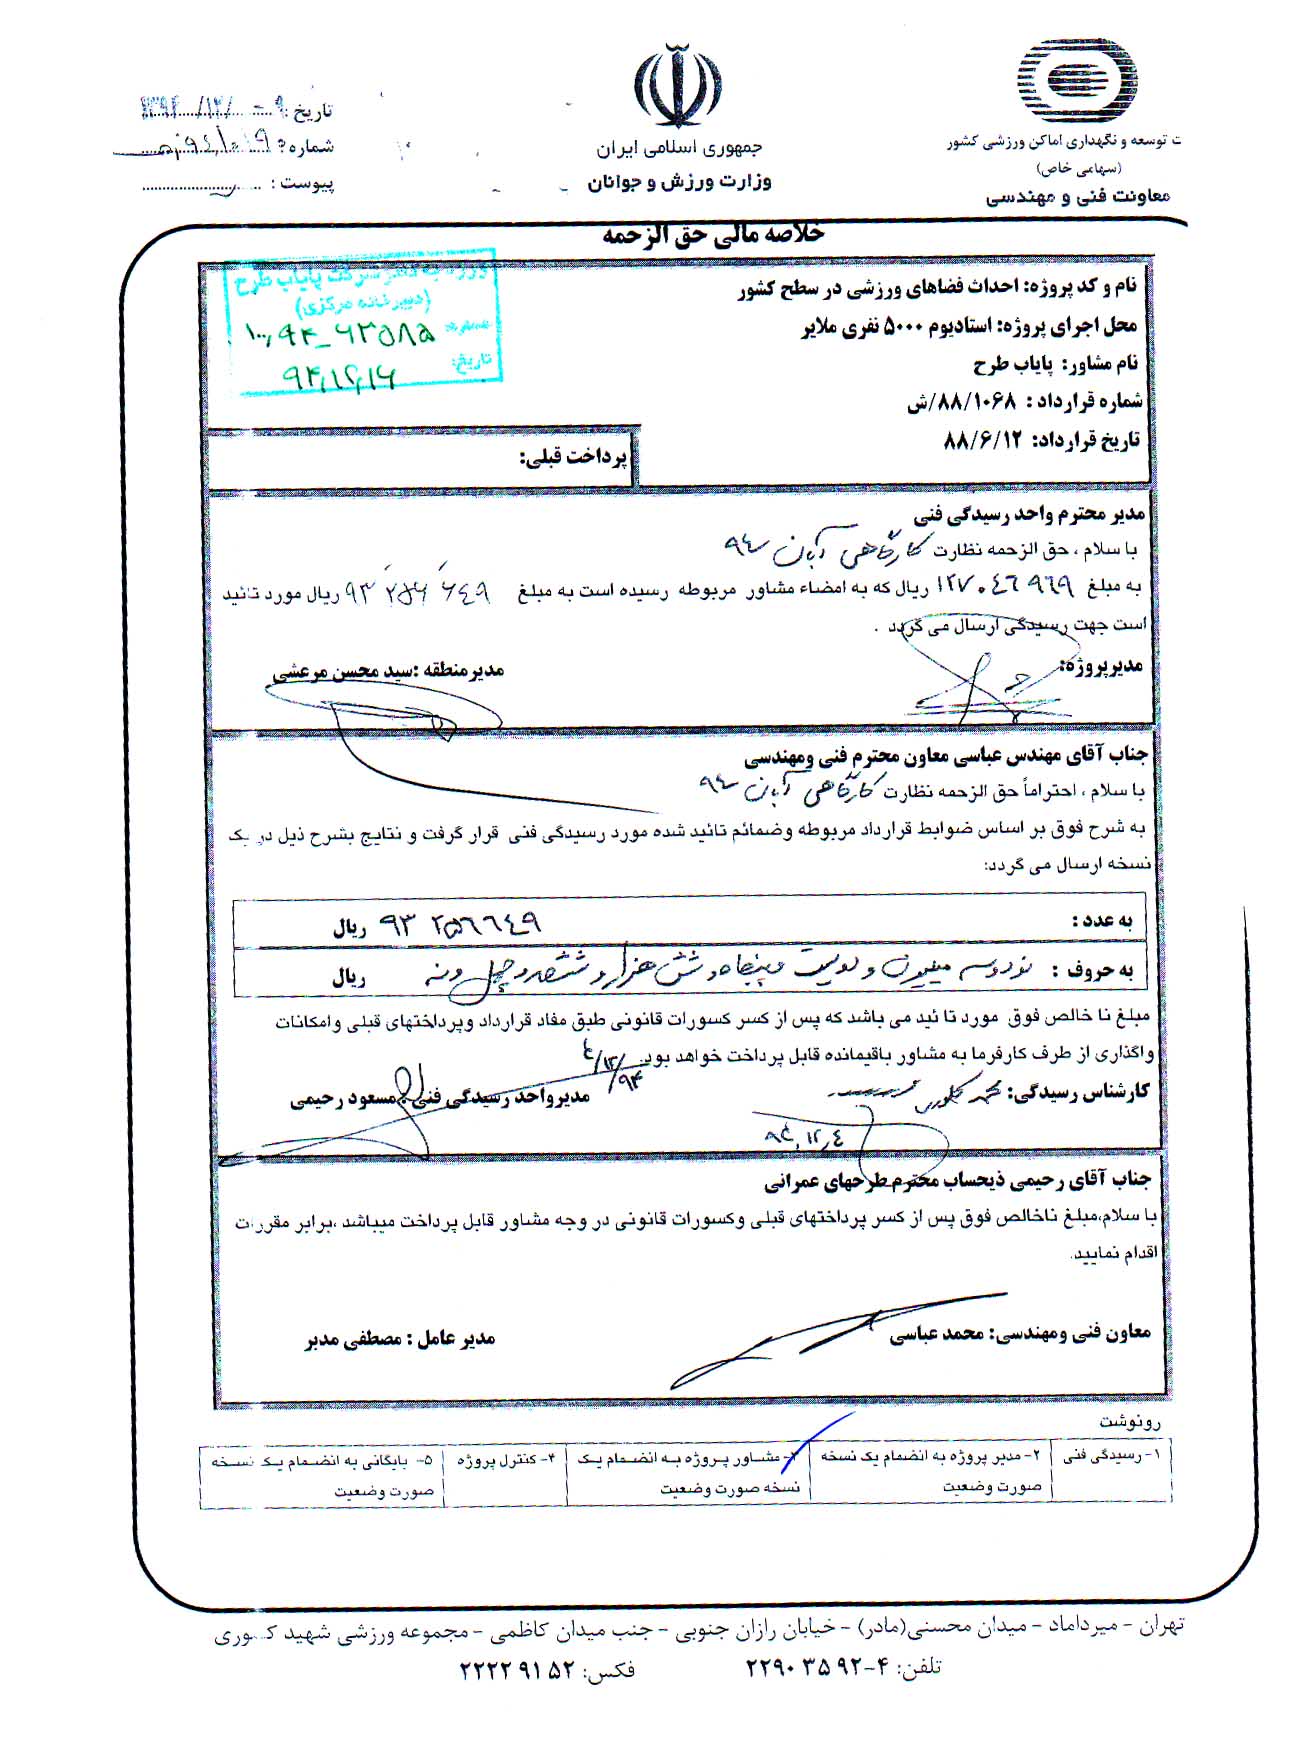 ت توسعه و نگهداری اماکن ورزشی کشور
(سهامی خاص)
معاونت فنی و مهندسی
جمهوری اسلامی ایران
وزارت ورزش و جوانان
تاریخ :
شماره :
پیوست :
خلاصه مالی حق الزحمه
نام و کد پروژه: احداث فضاهای ورزشی در سطح کشور
محل اجرای پروژه: استادیوم ۵۰۰۰ نفری ملایر
نام مشاور: پایاب طرح
شماره قرارداد : ۸۸/۱۰۶۸/ش
تاریخ قرارداد: ۸۸/۶/۱۲
شرکت پایاب طرح
(دبیرخانه مرکزی)
۱۰۰,۹۴-۶۳۵۸۵
تاریخ: ۹۴,۱۲,۱۶
پرداخت قبلی:
مدیر محترم واحد رسیدگی فنی
با سلام ، حق الزحمه نظارت کارگاهی آبان ۹۴
به مبلغ ۱۲۷۰۴۶۹۶۹ ریال که به امضاء مشاور مربوطه رسیده است به مبلغ ۹۳۲۵۶۶۴۹ ریال مورد تائید
است جهت رسیدگی ارسال می گردد .
مدیرپروژه:
مدیرمنطقه :سید محسن مرعشی
جناب آقای مهندس عباسی معاون محترم فنی ومهندسی
با سلام ، احتراماً حق الزحمه نظارت کارگاهی آبان ۹۴
به شرح فوق بر اساس ضوابط قرارداد مربوطه وضمائم تائید شده مورد رسیدگی فنی قرار گرفت و نتایج بشرح ذیل در یک
نسخه ارسال می گردد:
به عدد : ۹۳ ۲۵۶۶۴۹ ریال
به حروف : نود و سه میلیون و دویست و پنجاه و شش هزار و ششصد و چهل و نه ریال
مبلغ نا خالص فوق مورد تا ئید می باشد که پس از کسر کسورات قانونی طبق مفاد قرارداد وپرداختهای قبلی وامکانات
واگذاری از طرف کارفرما به مشاور باقیمانده قابل پرداخت خواهد بود.
کارشناس رسیدگی: محمد
۹۴,۱۲,۴
مدیرواحد رسیدگی فنی : مسعود رحیمی
۹۴/۱۲/۴
جناب آقای رحیمی ذیحساب محترم طرحهای عمرانی
با سلام،مبلغ ناخالص فوق پس از کسر پرداختهای قبلی وکسورات قانونی در وجه مشاور قابل پرداخت میباشد ،برابر مقررات
اقدام نمایید.
معاون فنی ومهندسی: محمد عباسی
مدیر عامل : مصطفی مدبر
رونوشت
۱- رسیدگی فنی
۲- مدیر پروژه به انضمام یک نسخه
صورت وضعیت
۳- مشاور پروژه به انضمام یک
نسخه صورت وضعیت
۴- کنترل پروژه
۵- بایگانی به انضمام یک نسخه
صورت وضعیت
تهران - میرداماد - میدان محسنی(مادر) - خیابان رازان جنوبی - جنب میدان کاظمی - مجموعه ورزشی شهید
تلفن: ۴-۲۲۹۰۳۵۹۲
فکس: ۲۲۲۲۹۱۵۲